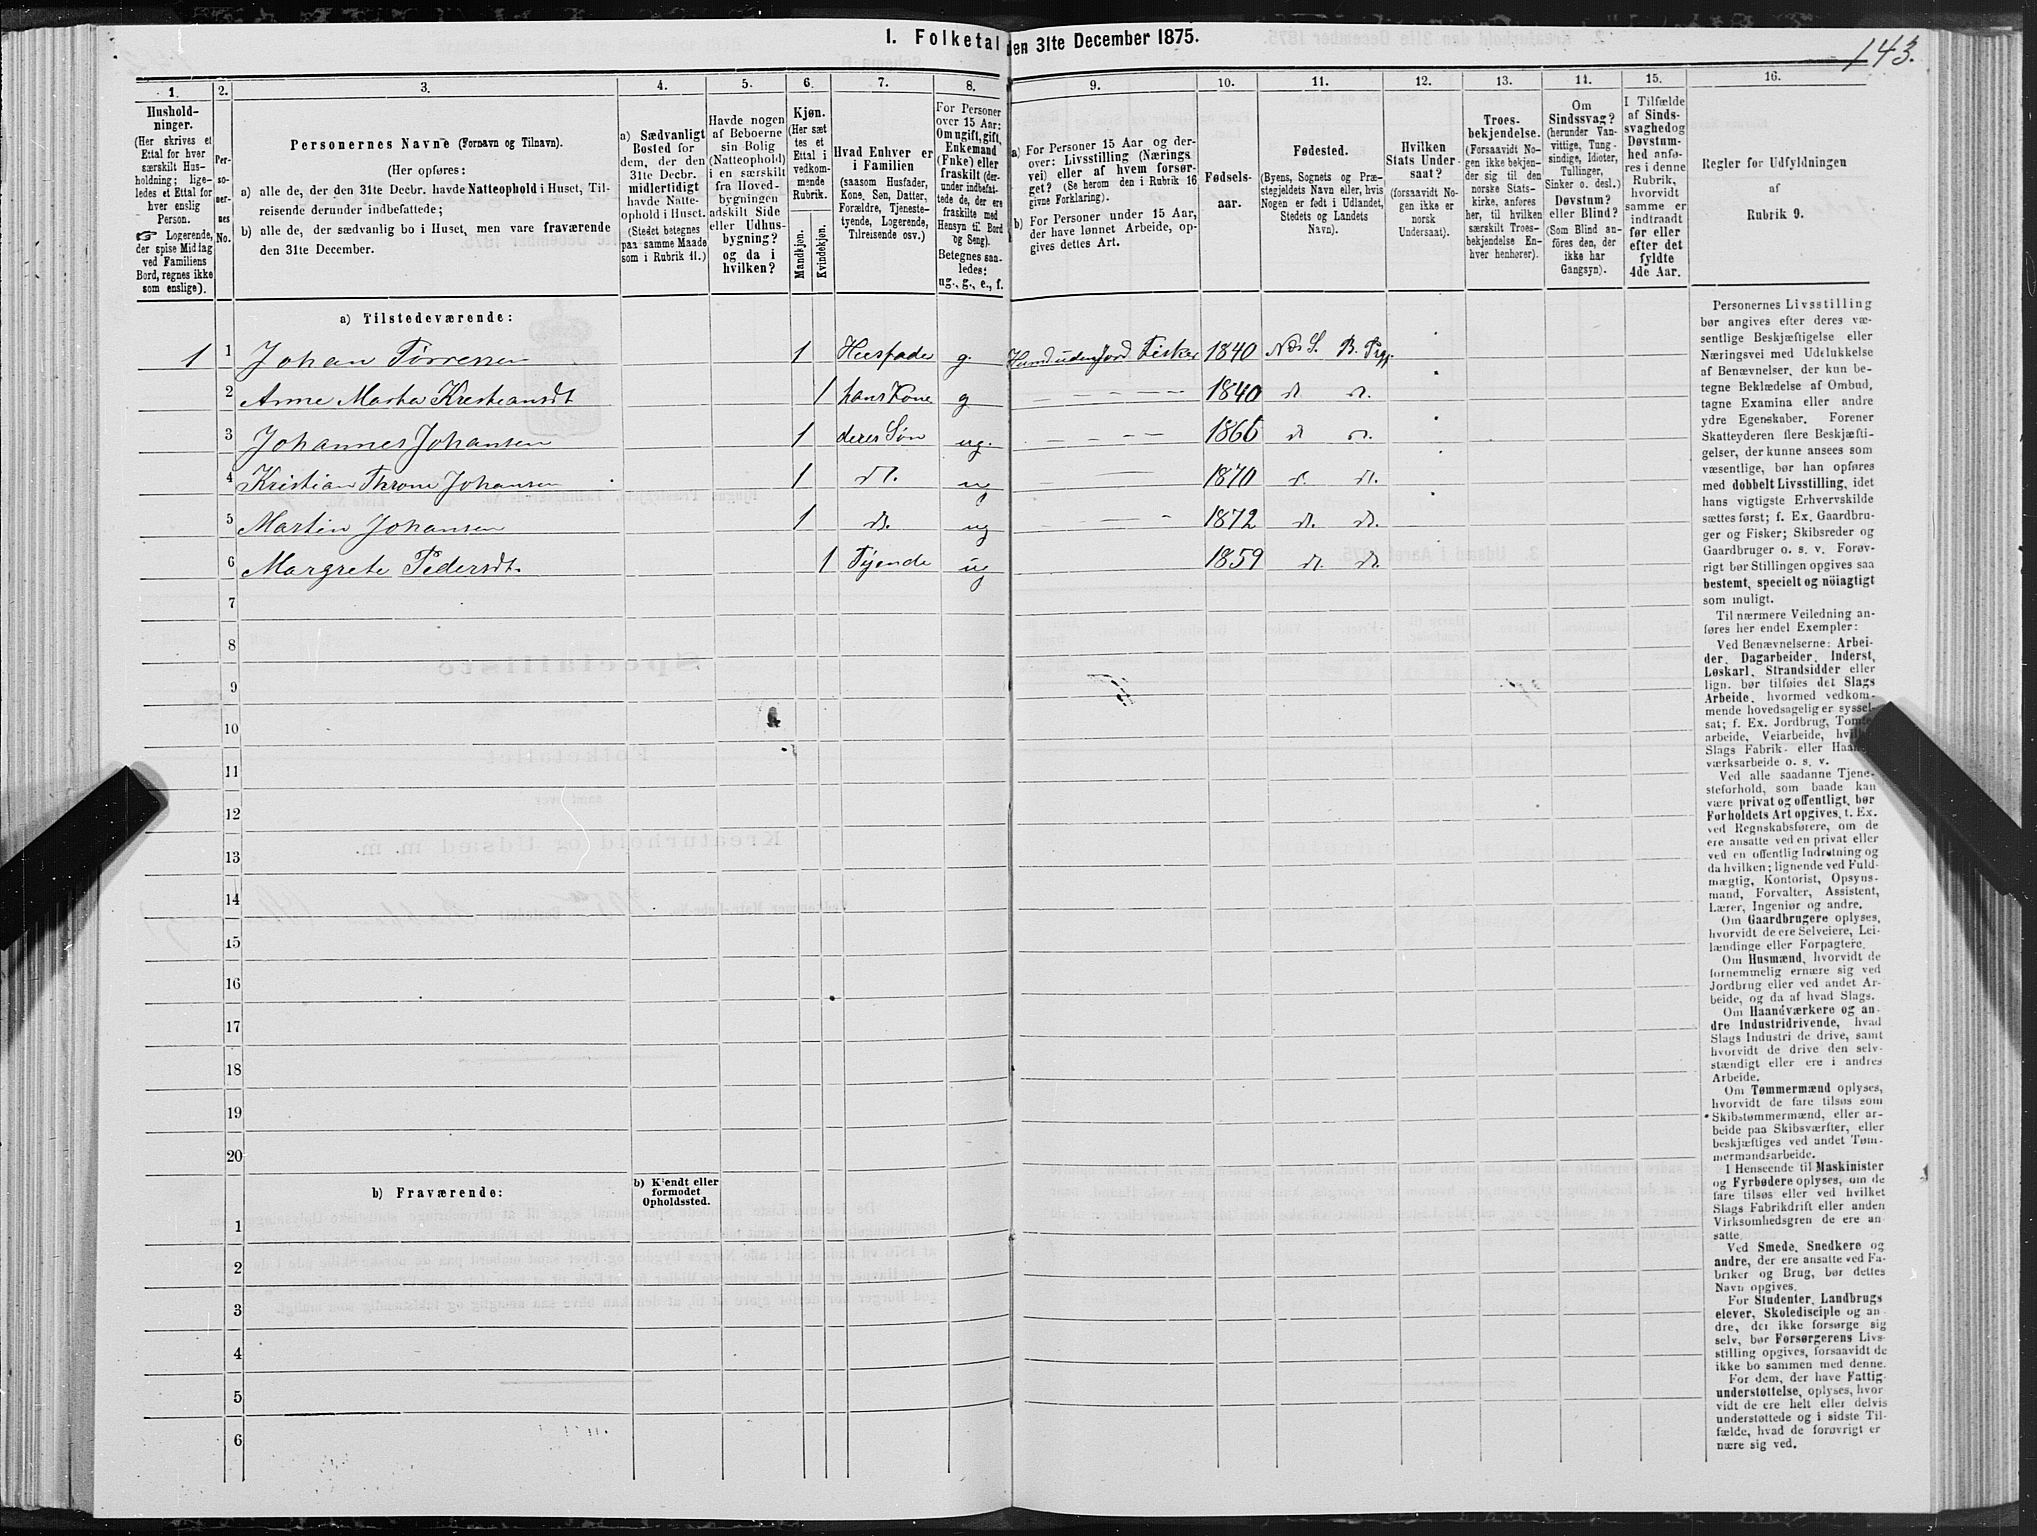 I. Folketal den 31te December 1875.
143.
1.
2.
3.
4.
5.
6.
7.
8.
9.
10.
11.
12.
13.
14.
15.
16.
Hushold-
ninger.
(Her skrives et
Ettal for hver
særskilt Hus-
holdning; lige-
ledes et Ettal for
hver enslig
Person.
☞ Logerende,
der spise Middag
ved Familiens
Bord, regnes ikke
som enslige).
Per-
so-
ner-
nes
No.
Personernes Navne (Fornavn og Tilnavn).
(Her opføres:
a) alle de, der den 31te Decbr. havde Natteophold i Huset, Til-
reisende derunder indbefattede;
b) alle de, der sædvanlig bo i Huset, men vare fraværende
den 31te December.
a) Sædvanligt
Bosted for
dem, der den
31te Decbr.
midlertidigt
havde Natte-
ophold i Huset.
(Stedet betegnes
paa samme Maade
som i Rubrik 11.)
Havde nogen
af Beboerne
sin Bolig
(Natteophold)
i en særskilt
fra Hoved-
bygningen
adskilt Side
eller Udhus-
bygning?
og da i
hvilken?
Kjøn.
(Her sæt-
tes et
Ettal i
vedkom-
mende
Rubrik.
Mandkjøn.
Kvindekjøn.
Hvad Enhver er
i Familien
(saasom Husfader,
Kone, Søn, Datter,
Forældre, Tjeneste-
tyende, Logerende,
Tilreisende osv.)
For Personer
over 15 Aar:
Om ugift, gift,
Enkemand
(Enke) eller
fraskilt (der-
under indbefat-
tede de, der ere
fraskilte med
Hensyn til Bord
og Seng).
Betegnes saa-
ledes:
ug., g., e., f.
a) For Personer 15 Aar og der-
over: Livsstilling (Nærings
vei) eller af hvem forsør-
get? (Se herom den i Rubrik 16
givne Forklaring).
b) For Personer under 15 Aar,
der have lønnet Arbeide, op-
gives dettes Art.
Fødsels-
aar.
Fødested.
(Byens, Sognets og Præ-
stegjeldets Navn eller, hvis
Nogen er født i Udlandet,
Stedets og Landets
Navn).
Hvilken
Stats Under-
saat?
(forsaavidt No-
gen ikke er
norsk
Undersaat).
Troes-
bekjendelse.
(Forsaavidt No-
gen ikke bekjen-
der sig til den
norske Stats-
kirke, anføres
her, til hvilken
særskilt Troes-
bekjendelse En-
hver henhører).
Om
Sindssvag?
(herunder Van-
vittige, Tung-
sindige, Idioter,
Tullinger,
Sinker o. desl.)
Døvstum?
eller Blind?
(Som Blind an-
føres den, der
ikke har
Gangsyn).
I Tilfælde
af Sinds-
svaghed og
Døvstum-
hed anfø-
res i denne
Rubrik,
hvorvidt
samme er
indtraadt
før eller
efter det
fyldte
4de Aar.
Regler for Udfyldningen
af
Rubrik 9.
a) Tilstedeværende:
1 1 Johan Tørresen 1 Husfader g. Husmd uden Jord Fisker 1840
2 Anne Marta Kristiansdt 1 hans Kone g — — — — — 1840 dt dt.
3 Johannes Johansen 1 deres Søn ug. — — — — 1866 dt dt.
4 Kristian Johansen 1 dt. ug — 1870 dt. dt.
5 Martin Johansen 1 dt. ug — — — 1872 dt. dt.
6 Margrete Pedersdt. 1 Tjende ug 1859 dt. dt.
7
8
9
10
11
12
13
14
15
16
17
18
19
20
b) Fraværende:
b) Kjendt eller
formodet
Opholdssted.
1
2
3
4
5
6
Personernes Livsstilling
bør angives efter deres væ-
sentlige Beskjæftigelse eller
Næringsvei med Udelukkelse
af Benævnelser, der kun be-
tegne Beklædelse af Ombud,
tagne Examina eller andre
ydre Egenskaber. Forener
Skatteyderen flere Beskjæfti-
gelser, der kunne ansees som
væsentlige, bør han opføres
med dobbelt Livsstilling, idet
hans vigtigste Erhvervskilde
sættes først; f. Ex. Gaardbru-
ger og Fisker; Skibsreder og
Gaardbruger o. s. v. Forøv-
rigt bør Stillingen opgives saa
bestemt, specielt og nøiagtigt
som muligt.
Til nærmere Veiledning an-
føres her endel Exempler:
Ved Benævnelserne: Arbei-
der, Dagarbeider, Inderst,
Løskarl, Strandsidder eller
lign. bør tilføies det Slags
Arbeide, hvormed vedkom-
mende hovedsagelig er syssel-
sat; f. Ex. Jordbrug, Tomte-
arbeide, Veiarbeide, hvilket
Slags Fabrik- eller Haand-
værksarbeide o. s. v.
Ved alle saadanne Tjene-
steforhold, som baade kan
være privat og offentligt, bør
Forholdets Art opgives, t. Ex.
ved Regnskabsførere, om de
ere ansatte ved en privat eller
ved en offentlig Indretning og
da hvilken; lignende ved Fuld-
mægtig, Kontorist, Opsyns-
mand, Forvalter, Assistent,
Lærer, Ingeniør og andre.
Om Gaardbrugere oplyses,
hvorvidt de ere Selveiere, Lei-
lændinge eller Forpagtere.
Om Husmænd, hvorvidt de
fornemmelig ernære sig ved
Jordbrug eller ved andet Ar-
beide, og da af hvad Slags.
Om Haandværkere og an-
dre Industridrivende, hvad
Slags Industri de drive, samt
hvorvidt de drive den selv-
stændigt eller ere i andres
Arbeide.
Om Tømmermænd oplyses,
hvorvidt de fare tilsøs som
Skibstømmermænd, eller ar-
beide paa Skibsværfter, eller
beskjæftiges ved andet Tøm-
mermandsarbeide.
I Henseende til Maskinister
og Fyrbødere oplyses, om de
fare tilsøs eller ved hvilket
Slags Fabrikdrift eller anden
Virksomhedsgren de ere an-
satte.
Ved Smede, Snedkere og
andre, der ere ansatte ved Fa-
briker og Brug, bør dettes
Navn opgives.
For Studenter, Landbrugs
elever, Skoledisciple og an-
dre, der ikke forsørge sig
selv, bør Forsørgerens Livs-
stilling opgives, forsaavidt de
ikke bo sammen med denne.
For dem, der have Fattig-
understøttelse, oplyses, hvor
vidt de ere helt eller delvis
understøttede og i sidste Til-
fælde, hvad de forøvrigt er
nære sig ved.